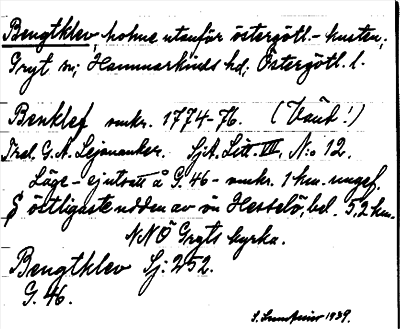 Bengtklev, holme utanför östergötl.-kusten,
Gryt sn; Hammarkinds hd; Östergötl. l.
Benklef omkr. 1774-76. (Vänd!)
Trol. G. A. Lejonanker. SjK. Litt. III, N:o 12.
Läge - ej utsatt å G. 46 - omkr. 1 km. ungef.
S östligaste udden av ön Hesselö, bel. 5,2 km.
NNÖ Gryts kyrka.
Bengtklev Sj: 252.
G. 46.
1939.